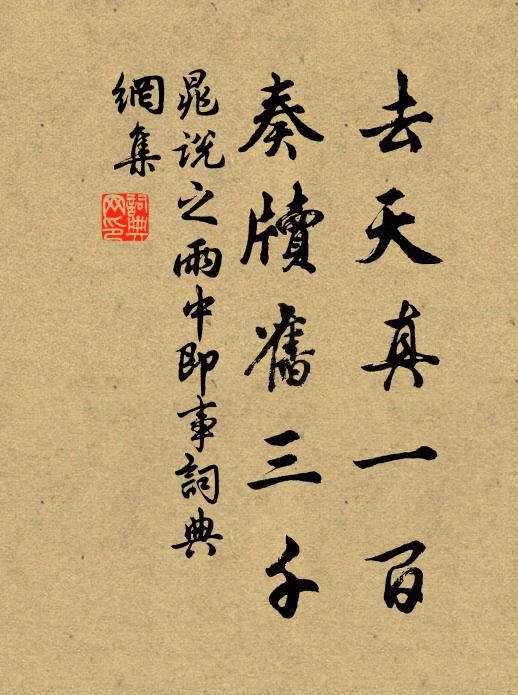 去天真一百
奏牘舊三千
晁說之雨中即事詞典
網集
詞典
网印